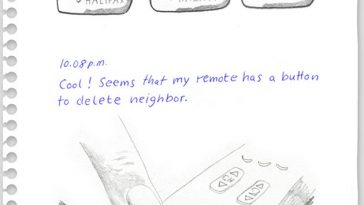 HALIFAX
10.08 p.m.
Cool! Seems that my remote has a button
to delete neighbor.